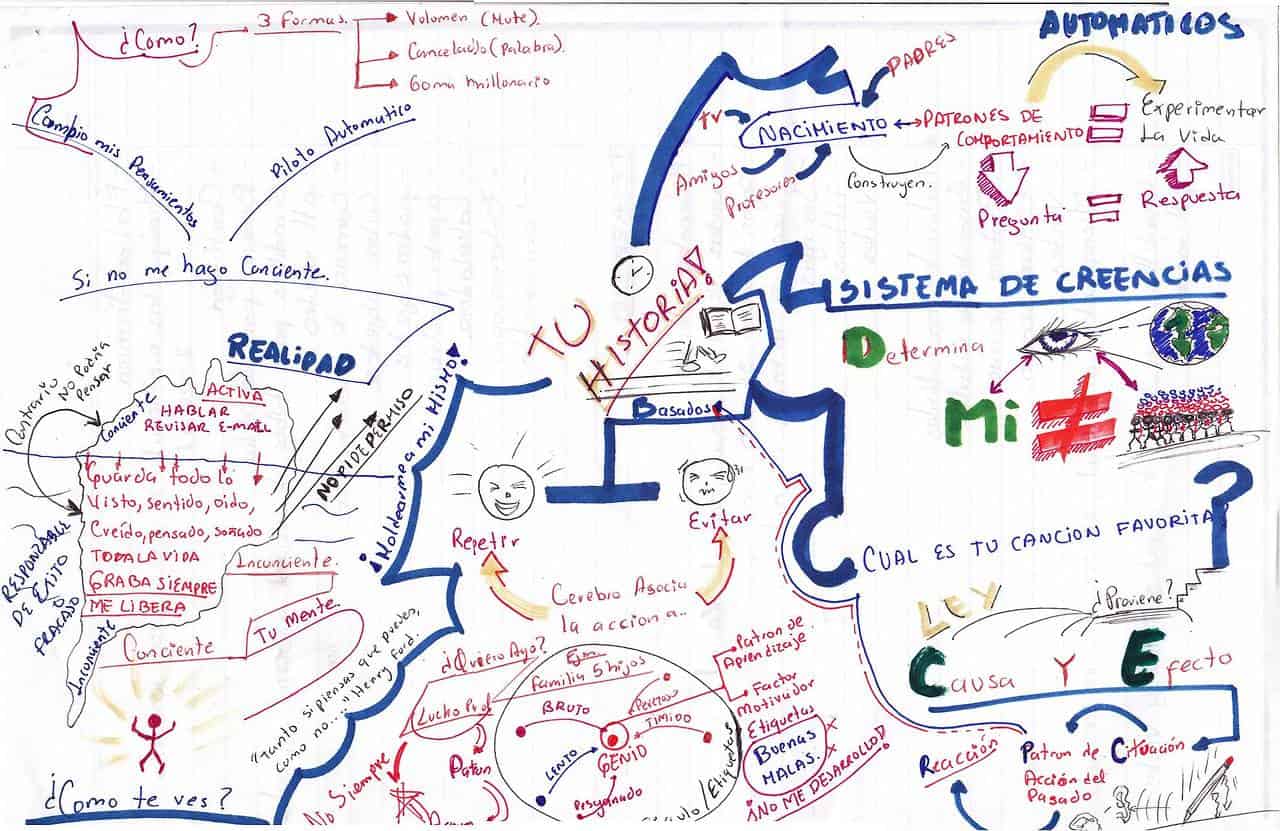 ¿Como?
3 Formas.
Volumen (Mute).
Cancelado (palabra).
Goma Millonario
Cambio mis Pensamientos
Piloto Automatico
Si no me hago Conciente.
REALIDAD
Contrario
No Podria
Pensar
Conciente
ACTIVA
HABLAR
REVISAR E-MAIL
Guarda todo lo
Visto, sentido, oido,
Creido, pensado, soñado
TODA LA VIDA
GRABA SIEMPRE
ME LIBERA
NO PIDE PERMISO
RESPONZABLE
DE EXITO
O
FRACAZO
Inconciente
Incunciente.
Conciente
Tu mente.
¿Como te ves?
¡Moldearme a mi MISMO!
"Tanto si piensas que puedes,
como no..." Henry Ford.
TU
HISTORIA!
Basados
Repetir
Evitar
Cerebro Asocia
la accion a..
¿Quiero Algo?
Lucho Por
No Siempre
Patron
Ejm
Familia 5 hijos
BRUTO
Perezoso
TIMIDO
LENTO
GENIO
/Etiquetas
Patron de
Aprendizaje
Factor
Motivador
Etiquetas
Buenas
MALAS.
¡NO ME DESARROLLO!
AUTOMATICOS
PADRES
TV
NACIMIENTO
Amigos
Profesores
Construyen.
PATRONES DE
COMPORTAMIENTO
Experimentar
La Vida
Pregunta
Respuesta
SISTEMA DE CREENCIAS
Determina
Mi
CUAL ES TU CANCION FAVORITA?
LEY
¿Proviene?
Causa Y Efecto
Reacción
Patron de
Acción del
Pasado
Cituación